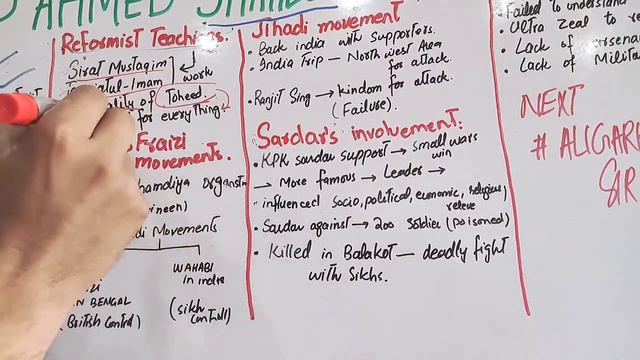 AHMED SHAHEED
Reformist Teachings.
Sirat Mustaqim
work
ul-Imam
ality of Toheed.
for everything
Fraizi
movements.
handiya Organstn
ineen)
di Movements
WAHABI
in india
N BENGAL
(British Control)
(sikh
Controll)
Jihadi movement
• Back india with supporters.
• India Trip — North west Area
for attack.
• Ranjit Sing → kindom for attack.
(Failuse).
Sardar's involvement:
• KPK sardar support → small wars
win
→ More famous → Leader →
influenced socio, political, economic, religious)
releve
• Sardar against → 200 soldier (poisoned)
• Killed in Balakot — deadly fight
with Sikhs.
Failed to understand
Ultra Zeal to re
• Lack of arsena
• Lack of Milita
NEXT
# ALIGAR
SIR